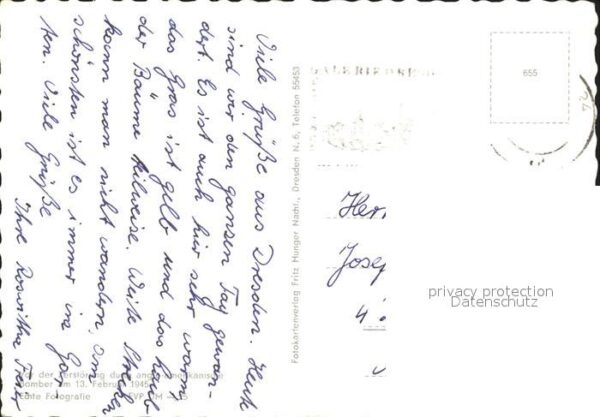 Viele Grüße aus Dresden. Heute
sind wir den ganzen Tag gewan-
dert. Es ist auch hier sehr warm,
das Gras ist gelb und das Laub
der Bäume teilweise. Weite Strecken
kann man nicht wandern. Am
schönsten ist es immer im Gar-
ten. Viele Grüße
Ihre Roswitha
Vor der Zerstörung durch anglo-amerikanische
Bomber am 13. Februar 1945
Echte Fotografie
Fotokartenverlag Fritz Hunger Nachf., Dresden N. 6, Telefon 55453
655
Herr
Josep
4
privacy protection
Datenschutz